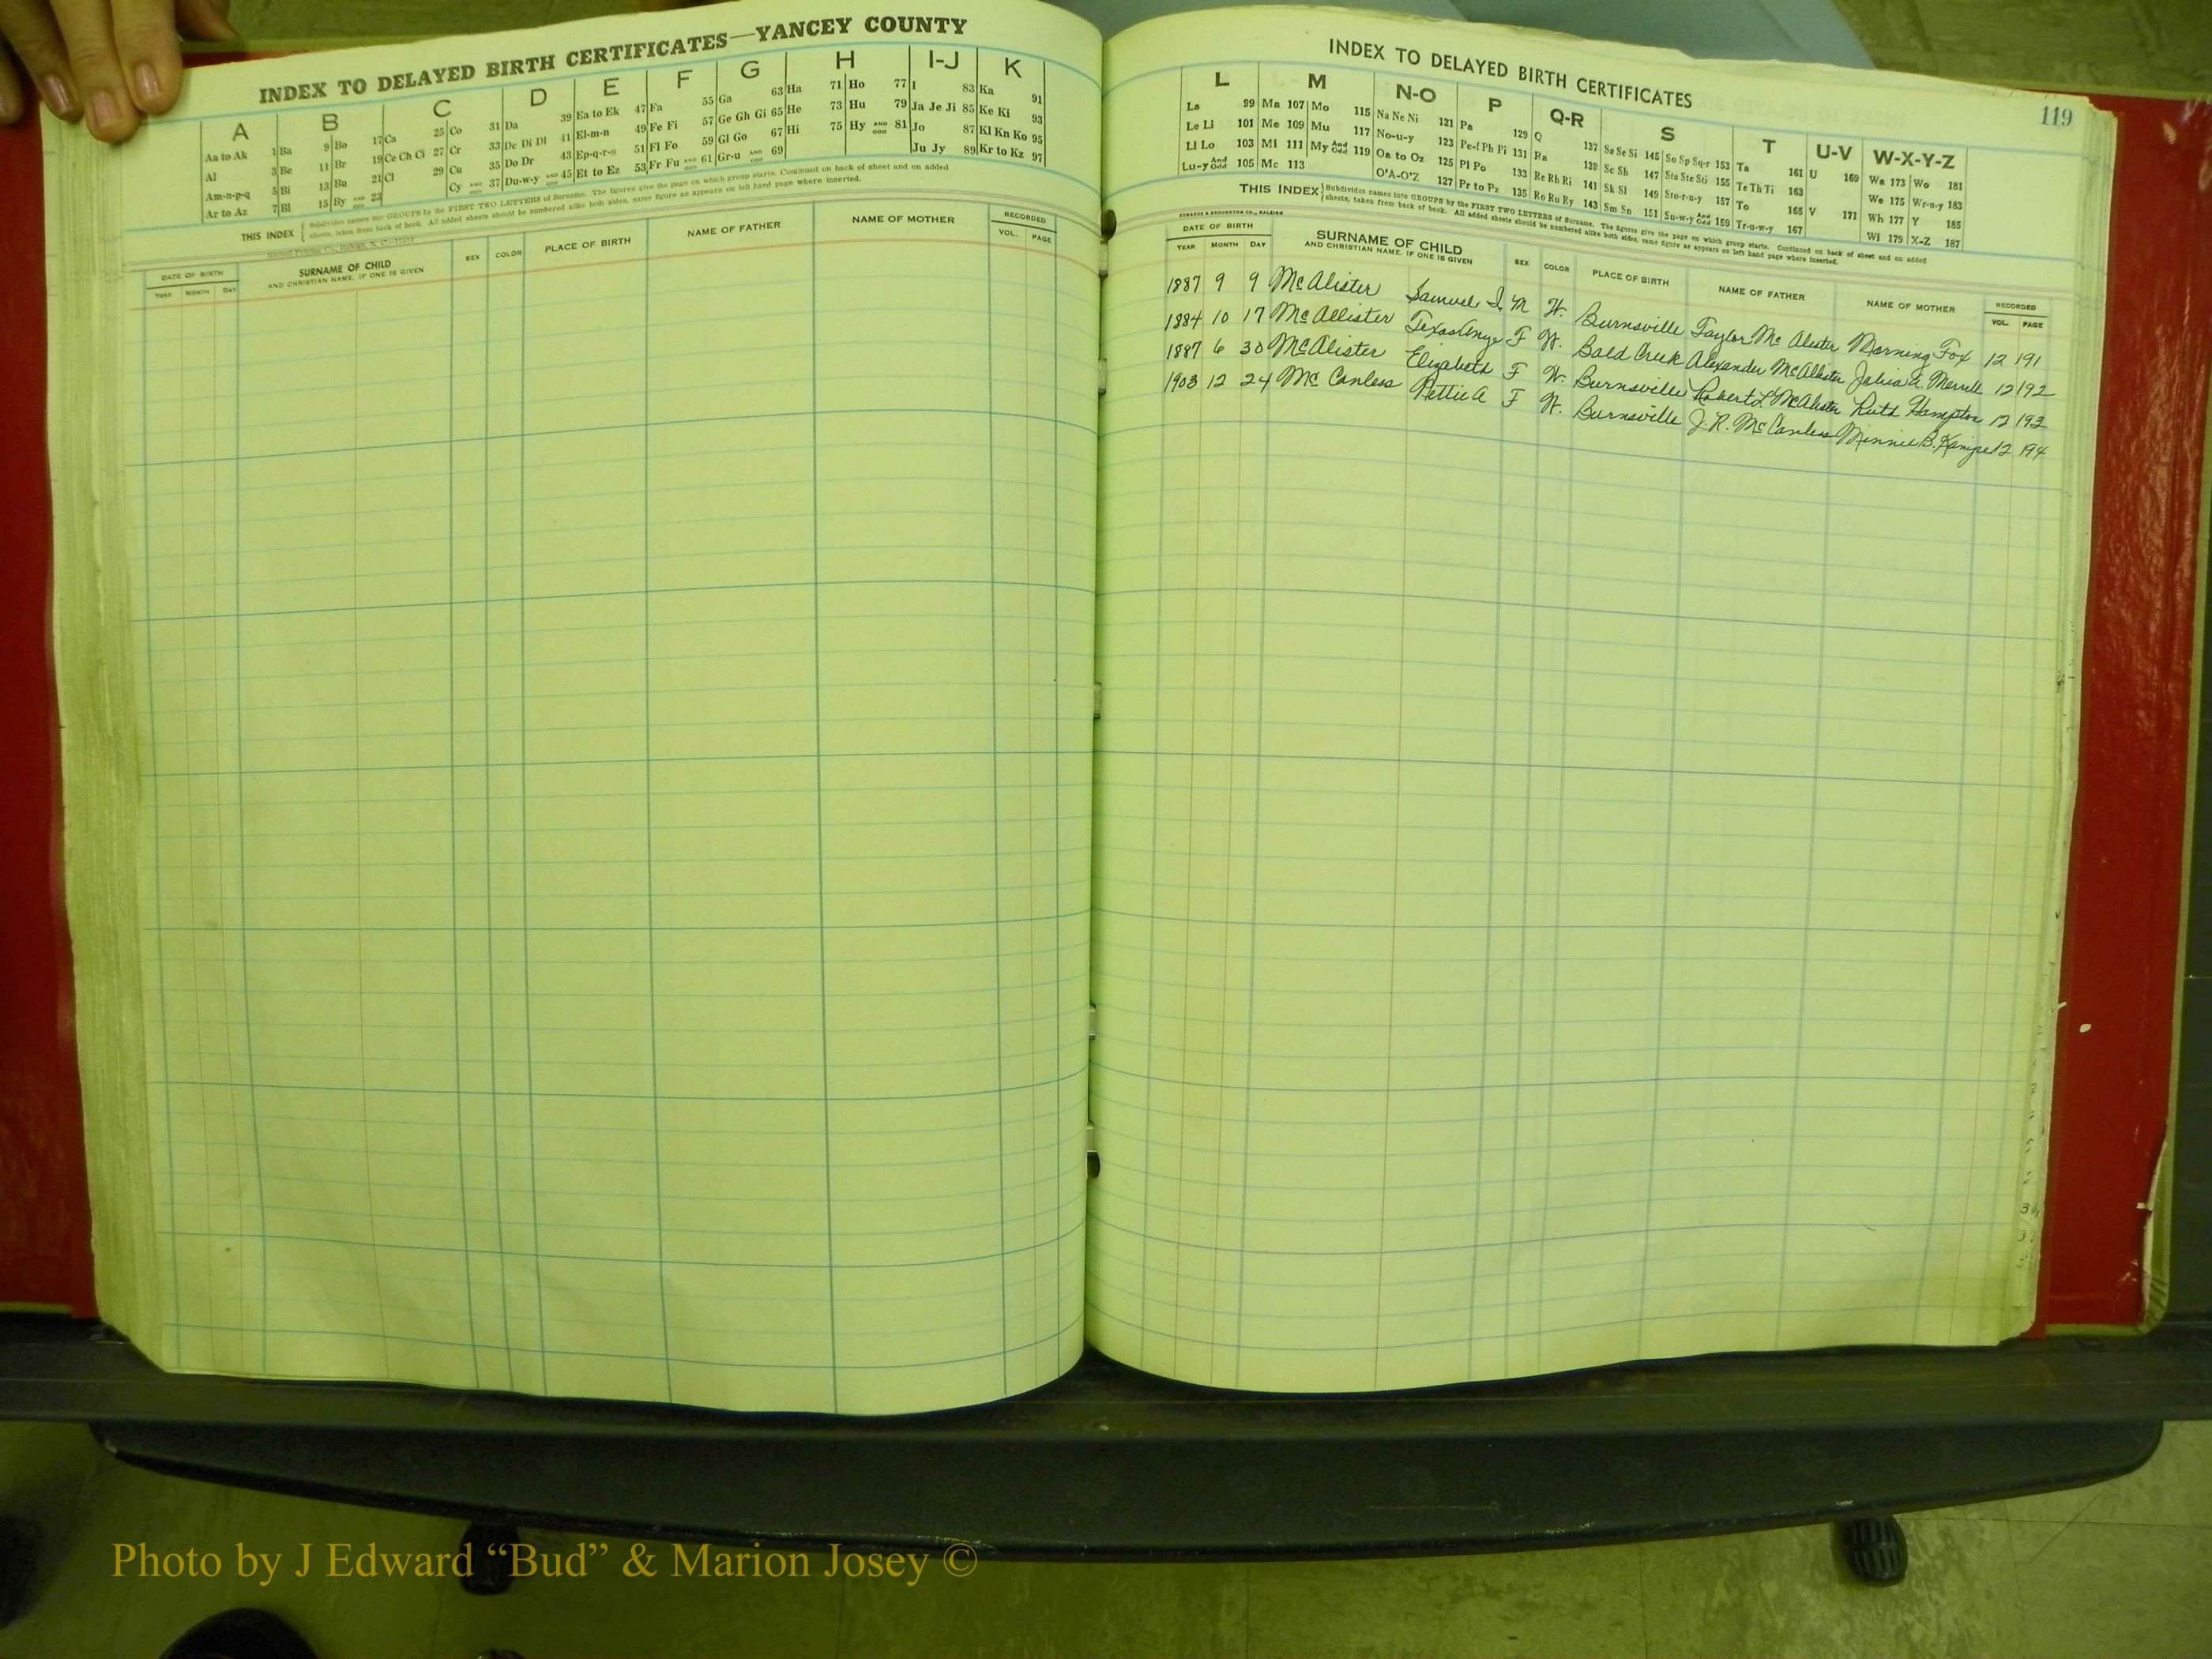 INDEX TO DELAYED BIRTH CERTIFICATES—YANCEY COUNTY
A B C D E F G H I-J K
Aa to Ak 1 Ba 9 Bo 17 Ca 25 Co 31 Da 39 Ea to Ek 47 Fa 55 Ga 63 Ha 71 Ho 77 I 83 Ka 91
Al 3 Be 11 Br 19 Ce Ch Ci 27 Cr 33 De Di Dl 41 El-m-n 49 Fe Fi 57 Ge Gh Gi 65 He 73 Hu 79 Ja Je Ji 85 Ke Ki 93
Am-n-p-q 5 Bi 13 Bu 21 Cl 29 Cu 35 Do Dr 43 Ep-q-r-s 51 Fl Fo 59 Gl Go 67 Hi 75 Hy AND ODD 81 Jo 87 Kl Kn Ko 95
Ar to Az 7 Bl 15 By AND ODD 23 Cy AND ODD 37 Du-w-y AND ODD 45 Et to Ez 53 Fr Fu AND ODD 61 Gr-u AND ODD 69 Ju Jy 89 Kr to Kz 97
THIS INDEX { Subdivides names into GROUPS by the FIRST TWO LETTERS of Surname. The figures give the page on which group starts. Continued on back of sheet and on added
sheets, taken from back of book. All added sheets should be numbered alike both sides, same figure as appears on left hand page where inserted.
DATE OF BIRTH SURNAME OF CHILD SEX COLOR PLACE OF BIRTH NAME OF FATHER NAME OF MOTHER RECORDED
YEAR MONTH DAY AND CHRISTIAN NAME, IF ONE IS GIVEN VOL. PAGE
INDEX TO DELAYED BIRTH CERTIFICATES
119
L M N-O P Q-R S T U-V W-X-Y-Z
La 99 Ma 107 Mo 115 Na Ne Ni 121 Pa 129 Q 137 Sa Se Si 145 So Sp Sq-r 153 Ta 161 U 169 Wa 173 Wo 181
Le Li 101 Me 109 Mu 117 No-u-y 123 Pe-f Ph Pi 131 Ra 139 Sc Sh 147 Sta Ste Sti 155 Te Th Ti 163 We 175 Wr-u-y 183
Ll Lo 103 Mi 111 My And Odd 119 Oa to Oz 125 Pl Po 133 Re Rh Ri 141 Sk Sl 149 Sto-r-u-y 157 To 165 V 171 Wh 177 Y 185
Lu-y And Odd 105 Mc 113 O'A-O'Z 127 Pr to Pz 135 Ro Ru Ry 143 Sm Sn 151 Su-w-y And Odd 159 Tr-u-w-y 167 Wi 179 X-Z 187
THIS INDEX { Subdivides names into GROUPS by the FIRST TWO LETTERS of Surname. The figures give the page on which group starts. Continued on back of sheet and on added
sheets, taken from back of book. All added sheets should be numbered alike both sides, same figure as appears on left hand page where inserted.
EDWARDS & BROUGHTON CO., RALEIGH
DATE OF BIRTH SURNAME OF CHILD SEX COLOR PLACE OF BIRTH NAME OF FATHER NAME OF MOTHER RECORDED
YEAR MONTH DAY AND CHRISTIAN NAME, IF ONE IS GIVEN VOL. PAGE
1887 9 9 McAlister Samuel M W. Burnsville Taylor Mc Alister Morning Fox 12 191
1884 10 17 McAllister F W. Bald Creek Alexander McAllister Julia A. Merrill 12 192
1887 6 30 McAlister Elizabeth F W. Burnsville Robert L. McAlister Ruth Hampton 12 193
1903 12 24 Mc Canless F W. Burnsville J. R. McCanless Minnie B. 12 194
Photo by J Edward “Bud” & Marion Josey ©